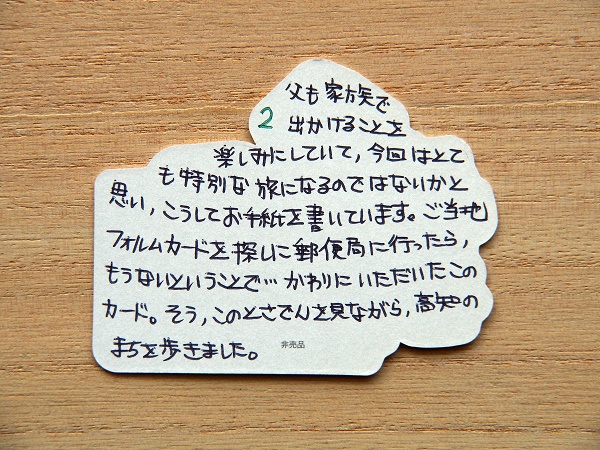 父も家族で
2 出かけることを
楽しみにしていて,今回はとて
も特別な旅になるのではないかと
思い,こうしてお手紙を書いています。ご当地
フォルムカードを探しに郵便局に行ったら,
もうないということで…かわりにいただいたこの
カード。そう,このとさでんを見ながら,高知の
まちを歩きました。
非売品